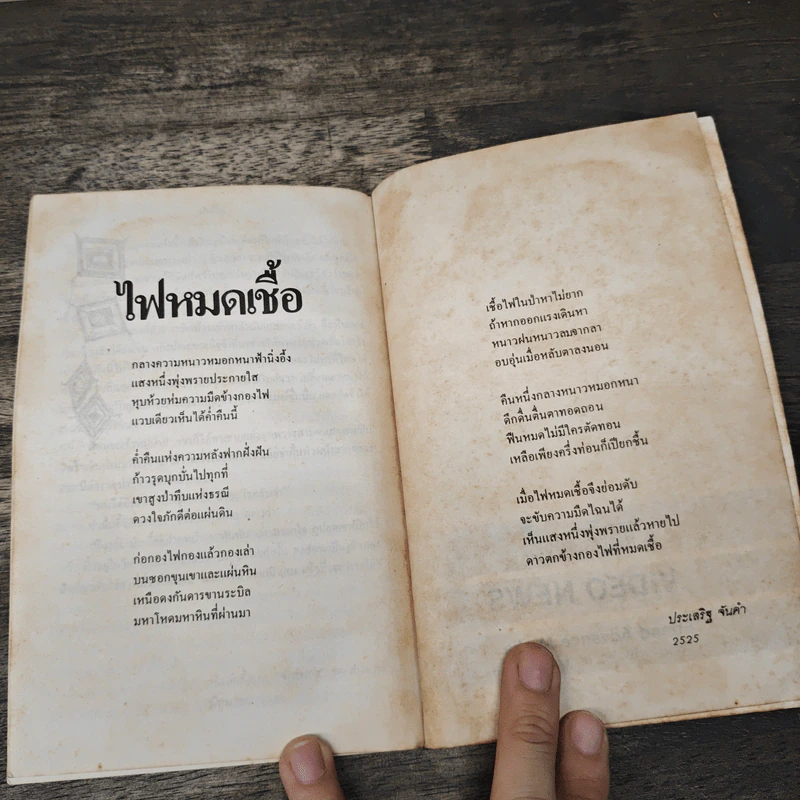 ไฟหมดเชื้อ
กลางความหนาวหมอกหนาฟ้านิ่งอึ้ง
แสงหนึ่งพุ่งพรายประกายใส
หุบห้วยห่มความมืดข้างกองไฟ
แวบเดียวเห็นได้ค่ำคืนนี้
ค่ำคืนแห่งความหลังฟากฝั่งฝัน
ก้าวรุดบุกบั่นไปทุกที่
เขาสูงป่าทึบแห่งธรณี
ดวงใจภักดีต่อแผ่นดิน
ก่อกองไฟกองแล้วกองเล่า
บนซอกขุนเขาและแผ่นหิน
เหนือดงกันดารขานระบิล
มหาโหดมหาหินที่ผ่านมา
เชื้อไฟในป่าหาไม่ยาก
ถ้าหากออกแรงเดินหา
หนาวฝนหนาวลมจากลา
อบอุ่นเมื่อหลับตาลงนอน
คืนหนึ่งกลางหนาวหมอกหนา
ดึกดื่นตื่นตาทอดถอน
ฟืนหมดไม่มีใครตัดทอน
เหลือเพียงครึ่งท่อนก็เปียกชื้น
เมื่อไฟหมดเชื้อจึงย่อมดับ
จะขับความมืดไฉนได้
เห็นแสงหนึ่งพุ่งพรายแล้วหายไป
ดาวตกข้างกองไฟที่หมดเชื้อ
ประเสริฐ จันดำ
2525